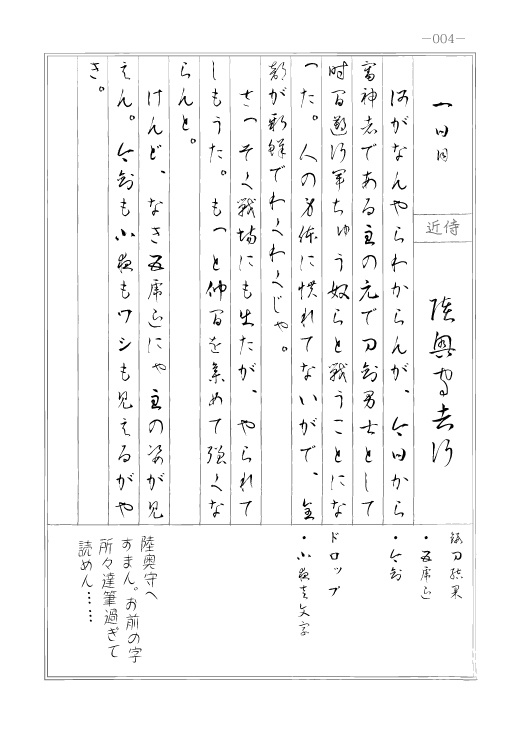 －004－
一日目
近侍
陸奥守吉行
何がなんやらわからんが、今日から
審神者である主の元で刀剣男士として
時間遡行軍ちゅう奴らと戦うことにな
った。人の身体に慣れてないがで、全
部が新鮮でわくわくじゃ。
さっそく戦場にも出たが、やられて
しもうた。もっと仲間を集めて強くな
らんと。
けんど、なき五虎退にゃ主の姿が見
えん。今剣も小夜もワシも見えるがや
き。
鍛刀結果
・五虎退
・今剣
ドロップ
・小夜左文字
陸奥守へ
すまん。お前の字
所々達筆過ぎて
読めん……